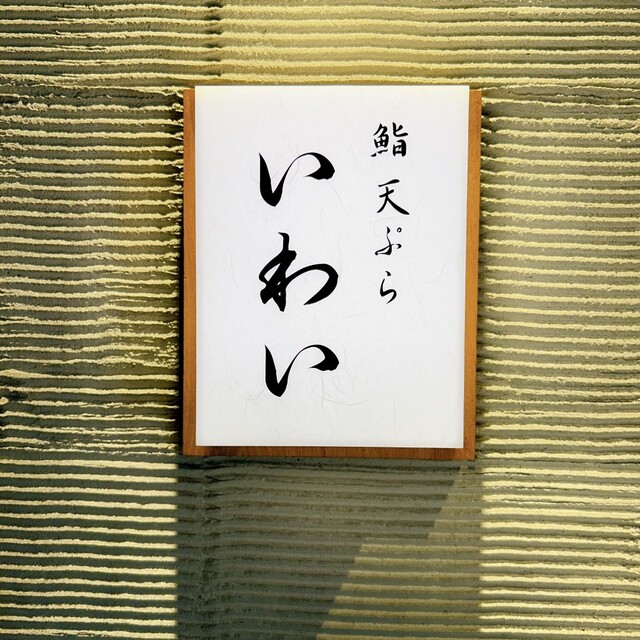 鮨 天ぷら
いわい